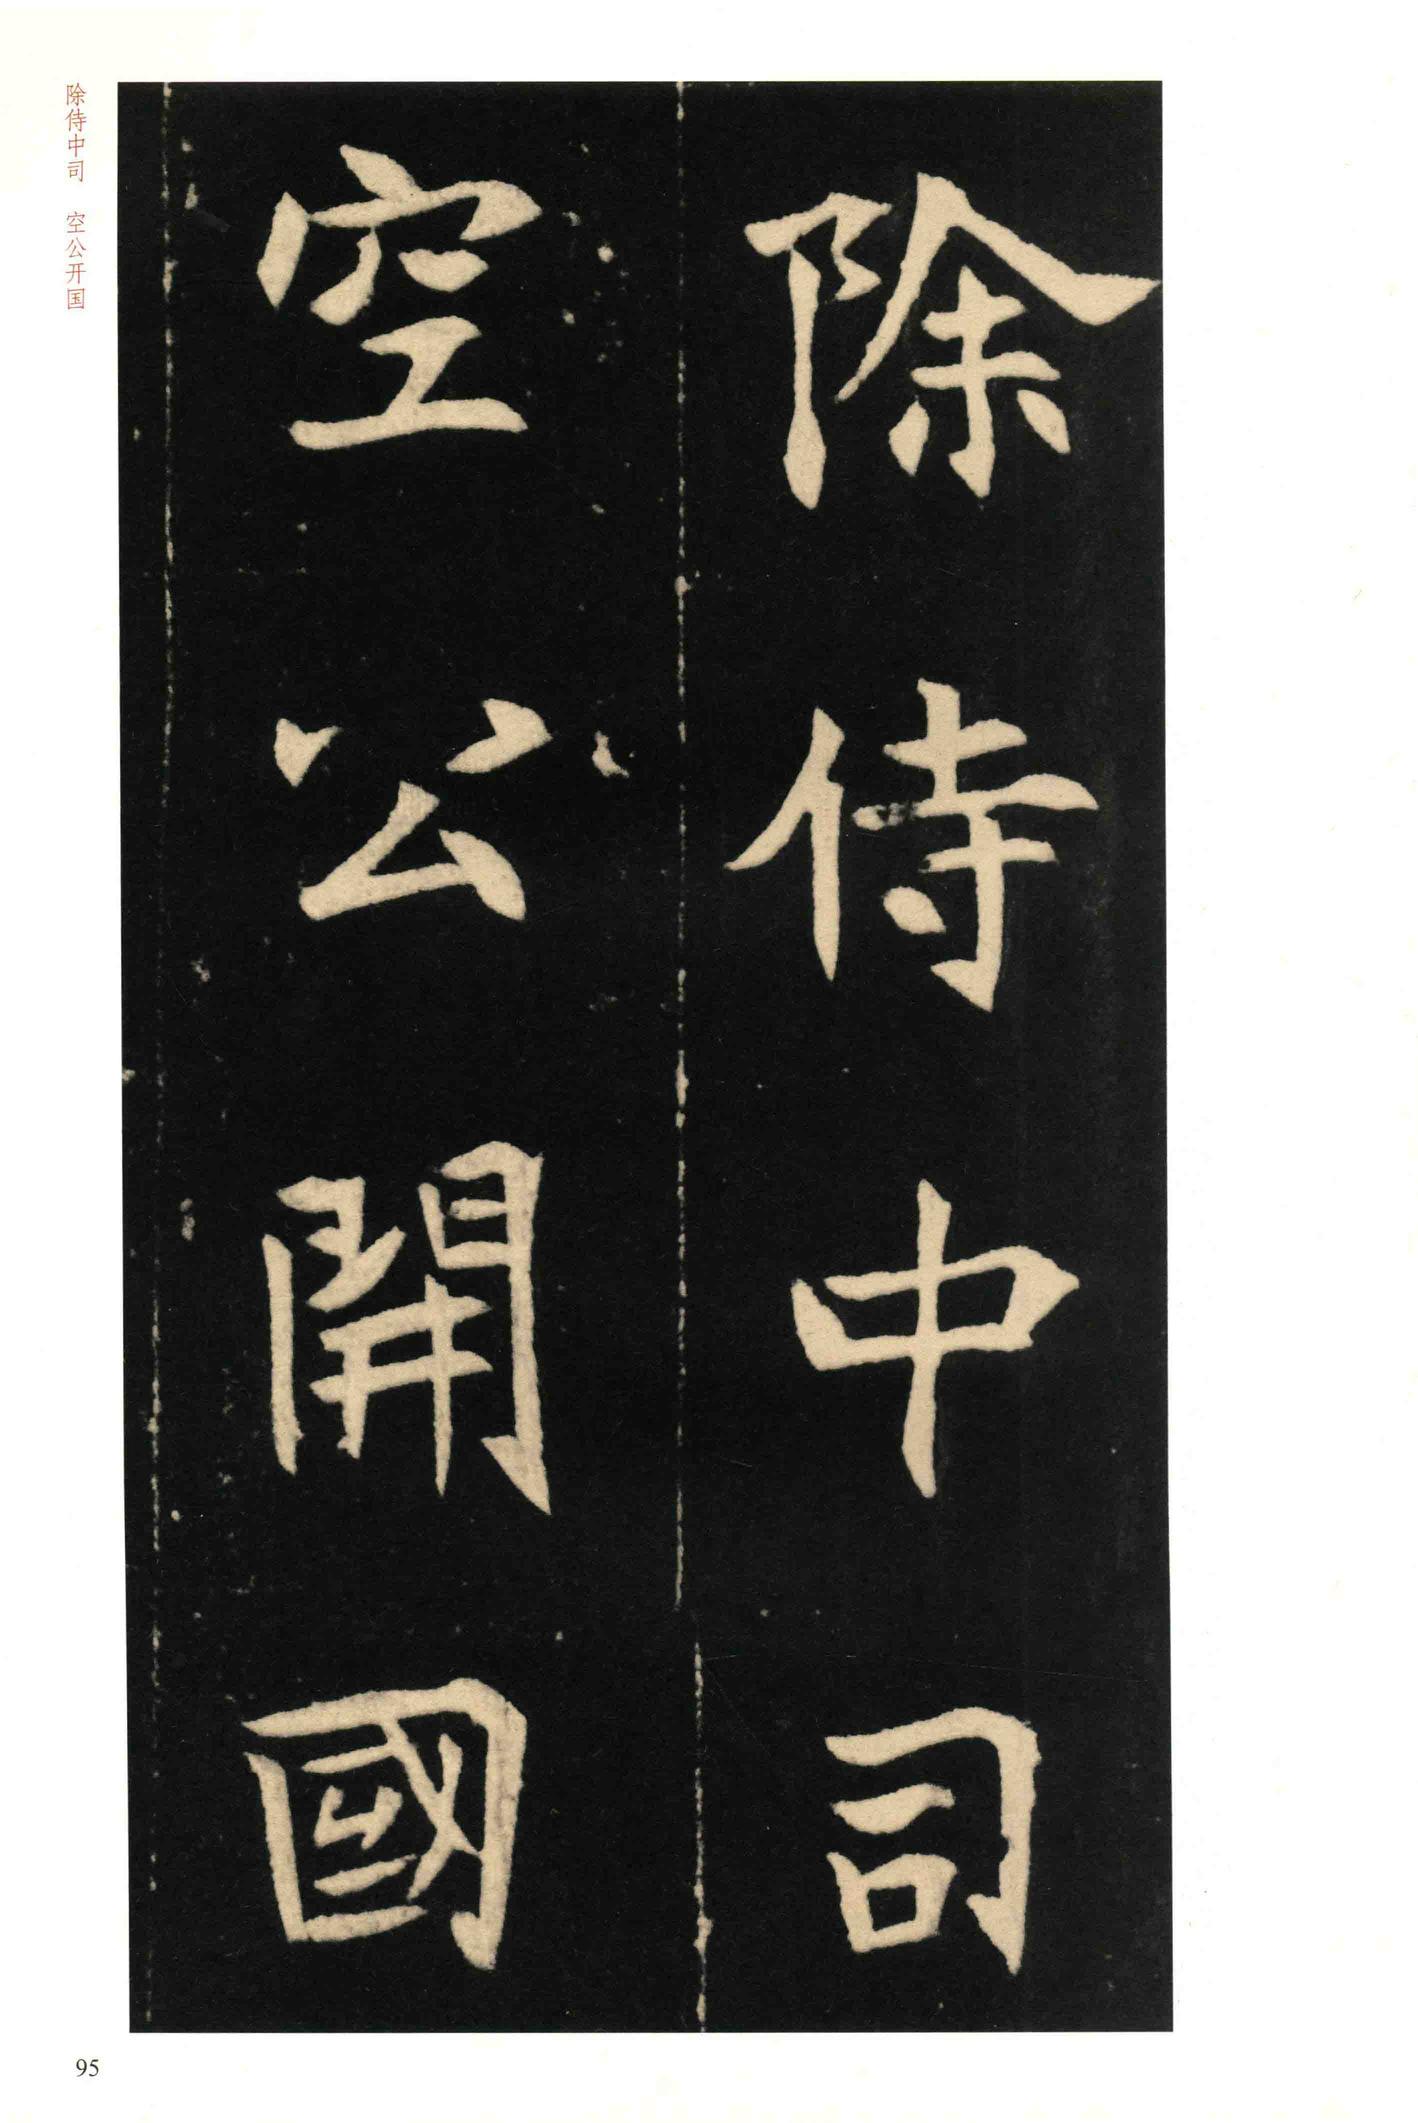 除侍中司
空公開國
除侍中司　空公开国
95